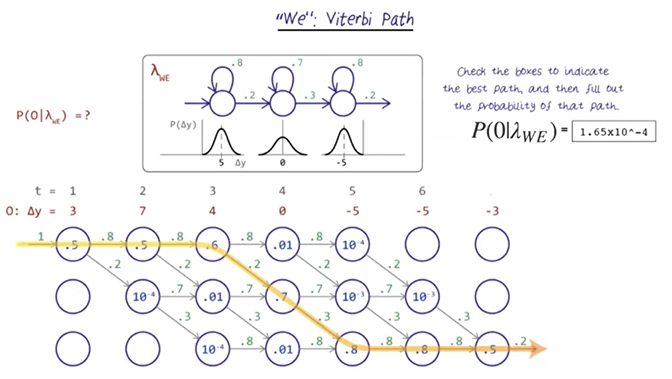 "We": Viterbi Path
λWE
.8 .7 .8
.2 .3 .2
P(Δy)
5 Δy 0 -5
P(O|λWE) = ?
Check the boxes to indicate
the best path, and then fill out
the probability of that path.
P(0|λWE) = 1.65x10^-4
t = 1 2 3 4 5 6 .
O: Δy = 3 7 4 0 -5 -5 -3
1 .5 .8 .5 .8 .6 .8 .01 .8 10⁻⁴
.2 .2 .2 .2 .2
10⁻⁴ .7 .01 .7 .7 .7 10⁻³ .7 10⁻³
.3 .3 .3 .3 .3
10⁻⁴ .8 .01 .8 .8 .8 .8 .8 .5 .2